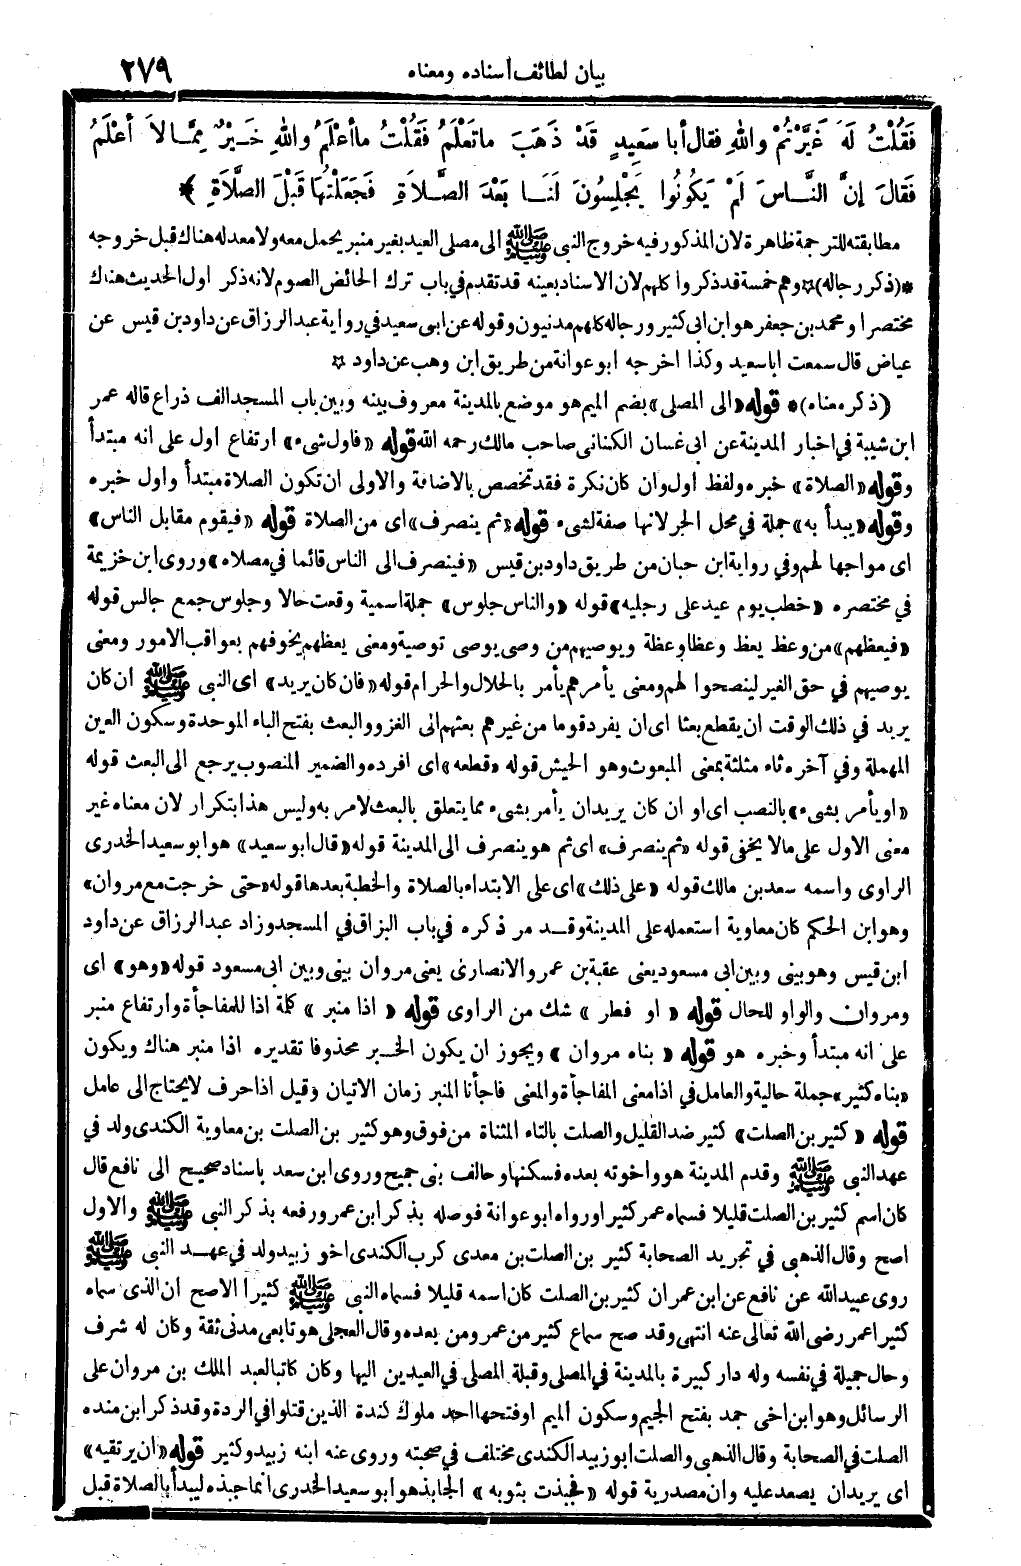 بيان لطائف أسناده ومعناه ٢٧٩
فَقُلْتُ لَهُ غَيَّرْتُمْ واللهِ فقال أبا سَعِيدٍ قَدْ ذَهَبَ ماتَعْلَمُ فَقُلْتُ ماأعْلَمُ واللهِ خَيْرٌ مِمَّا لاَ أعْلَمُ
فَقالَ إنَّ النَّاسَ لَمْ يَكُونُوا يَجْلِسُونَ لَنَا بَعْدَ الصَّلاَةِ فَجَعَلْتُهَا قَبْلَ الصَّلَاةِ ﴾
مطابقته للترجمة ظاهرة لان المذكور فيه خروج النبى ﷺ الى مصلى العيد بغير منبر يحمل معه ولا معد له هناك قبل خروجه
*(ذكر رجاله)* وهم خمسة قد ذكروا كلهم لان الاسناد بعينه قد تقدم في باب ترك الحائض الصوم لانه ذكر اول الحديث هناك
مختصرا ومحمد بن جعفر هو ابن ابى كثير ورجاله كلهم مدنيون وقوله عن ابى سعيد في رواية عبد الرزاق عن داود بن قيس عن
عياض قال سمعت اباسعيد وكذا اخرجه ابو عوانة من طريق ابن وهب عن داود *
(ذكر معناه)* قوله «الى المصلى» بضم الميم هو موضع بالمدينة معروف بينه وبين باب المسجد الف ذراع قاله عمر
ابن شيبة في اخبار المدينة عن ابى غسان الكنانى صاحب مالك رحمه الله قوله «فاول شىء» ارتفاع اول على انه مبتدأ
وقوله «الصلاة» خبره ولفظ اول وان كان نكرة فقد تخصص بالاضافة والاولى ان تكون الصلاة مبتدأ واول خبره
وقوله «يبدأ به» جملة في محل الجر لانها صفة لشىء قوله «ثم ينصرف» اى من الصلاة قوله «فيقوم مقابل الناس»
اى مواجها لهم وفي رواية ابن حبان من طريق داود بن قيس «فينصرف الى الناس قائما في مصلاه» وروى ابن خزيمة
في مختصره «خطب يوم عيد على رجليه» قوله «والناس جلوس» جملة اسمية وقعت حالا وجلوس جمع جالس قوله
«فيعظهم» من وعظ يعظ وعظا وعظة ويوصيهم من وصى يوصى توصية ومعنى يعظهم يخوفهم بعواقب الامور ومعنى
يوصيهم في حق الغير لينصحوا لهم ومعنى يأمرهم يأمر بالحلال والحرام قوله «فان كان يريد» اى النبى ﷺ ان كان
يريد في ذلك الوقت ان يقطع بعثا اى ان يفرد قوما من غيرهم يبعثهم الى الغزو والبعث بفتح الباء الموحدة وسكون العين
المهملة وفي آخره ثاء مثلثة بمعنى المبعوث وهو الجيش قوله «قطعه» اى افرده والضمير المنصوب يرجع الى البعث قوله
«او يأمر بشىء» بالنصب اى او ان كان يريدان يأمر بشىء مما يتعلق بالبعث لامر به وليس هذا بتكرار لان معناه غير
معنى الاول على مالا يخفى قوله «ثم ينصرف» اى ثم هو ينصرف الى المدينة قوله «قال ابو سعيد» هو ابو سعيد الخدرى
الراوى واسمه سعد بن مالك قوله «على ذلك» اى على الابتداء بالصلاة والخطبة بعدها قوله «حتى خرجت مع مروان»
وهو ابن الحكم كان معاوية استعمله على المدينة وقد مر ذكره في باب البزاق في المسجد وزاد عبد الرزاق عن داود
ابن قيس وهو بينى وبين ابى مسعود يعنى عقبة بن عمرو الانصارى يعنى مروان بينى وبين ابى مسعود قوله «وهو» اى
ومروان والواو للحال قوله «او فطر» شك من الراوى قوله «اذا منبر» كلمة اذا للمفاجأة وارتفاع منبر
على انه مبتدأ وخبره هو قوله «بناه مروان» ويجوز ان يكون الخبر محذوفا تقديره اذا منبر هناك ويكون
«بناه كثير» جملة حالية والعامل في اذا معنى المفاجأة والمعنى فاجأنا المنبر زمان الاتيان وقيل اذا حرف لا يحتاج الى عامل
قوله «كثير بن الصلت» كثير ضد القليل والصلت بالتاء المثناة من فوق وهو كثير بن الصلت بن معاوية الكندى ولد في
عهد النبى ﷺ وقدم المدينة هو واخوته بعده فسكنها وحالف بنى جميح وروى ابن سعد باسناد صحيح الى نافع قال
كان اسم كثير بن الصلت قليلا فسماه عمر كثيرا ورواه ابو عوانة فوصله بذكر ابن عمر ورفعه بذكر النبى ﷺ والاول
اصح وقال الذهبى في تجريد الصحابة كثير بن الصلت بن معدى كرب الكندى اخو زبيد ولد في عهد النبى ﷺ
روى عبيد الله عن نافع عن ابن عمر ان كثير بن الصلت كان اسمه قليلا فسماه النبى ﷺ كثيرا الاصح ان الذى سماه
كثيرا عمر رضى الله تعالى عنه انتهى وقد صح سماع كثير من عمر ومن بعده وقال العجلى هو تابعى مدنى ثقة وكان له شرف
وحال جميلة في نفسه وله دار كبيرة بالمدينة في المصلى وقبلة المصلى في العيدين اليها وكان كاتبا لعبد الملك بن مروان على
الرسائل وهو ابن اخى جمد بفتح الجيم وسكون الميم او فتحها احد ملوك كندة الذين قتلوا في الردة وقد ذكر ابن منده
الصلت في الصحابة وقال الذهبى والصلت ابو زبيد الكندى مختلف في صحبته وروى عنه ابنه زبيد وكثير قوله «ان يرتقيه»
اى يريدان يصعد عليه وان مصدرية قوله «فجبذت بثوبه» الجابذ هو ابو سعيد الخدرى انما جبذه ليبدأ بالصلاة قبل